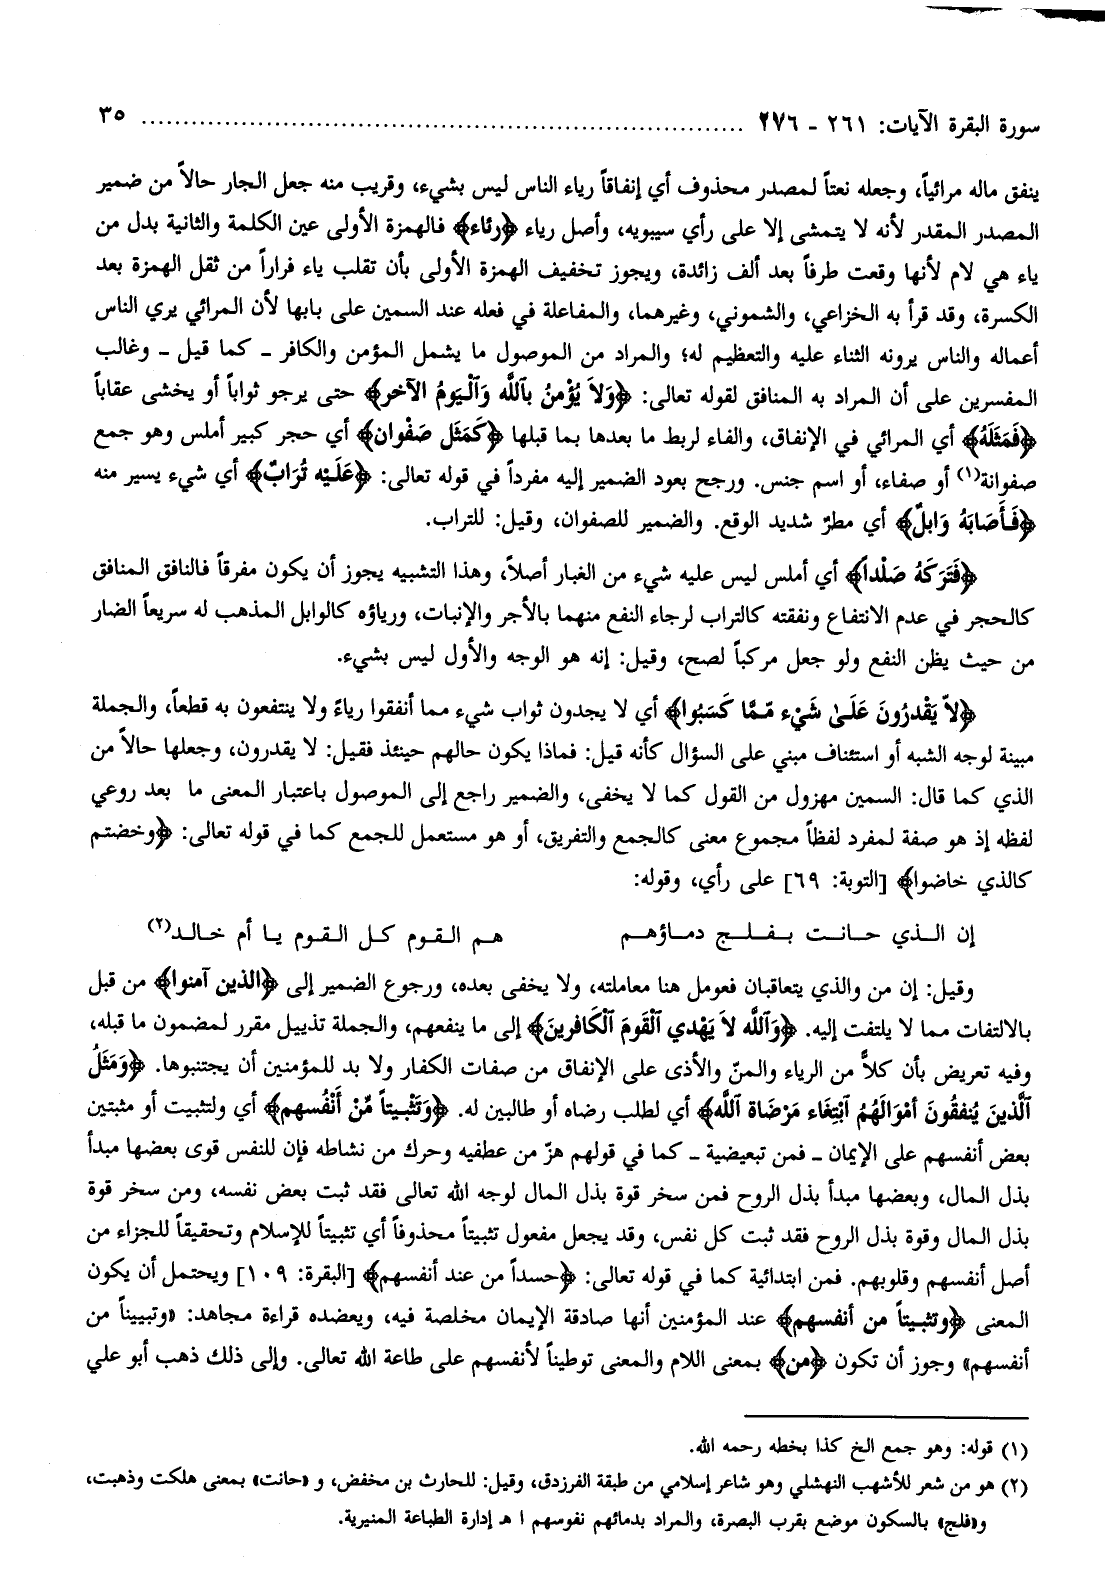 سورة البقرة الآيات: ٢٦١ - ٢٧٦ ........................................ ٣٥
ينفق ماله مرائياً، وجعله نعتاً لمصدر محذوف أي إنفاقاً رياء الناس ليس بشيء، وقريب منه جعل الجار حالاً من ضمير
المصدر المقدر لأنه لا يتمشى إلا على رأي سيبويه، وأصل رياء ﴿رئاء﴾ فالهمزة الأولى عين الكلمة والثانية بدل من
ياء هي لام لأنها وقعت طرفاً بعد ألف زائدة، ويجوز تخفيف الهمزة الأولى بأن تقلب ياء فراراً من ثقل الهمزة بعد
الكسرة، وقد قرأ به الخزاعي، والشموني، وغيرهما، والمفاعلة في فعله عند السمين على بابها لأن المرائي يري الناس
أعماله والناس يرونه الثناء عليه والتعظيم له؛ والمراد من الموصول ما يشمل المؤمن والكافر - كما قيل - وغالب
المفسرين على أن المراد به المنافق لقوله تعالى: ﴿وَلاَ يُؤْمِنُ بِٱللَّه وَٱلْيَومُ الآخر﴾ حتى يرجو ثواباً أو يخشى عقاباً
﴿فَمَثَلَهُ﴾ أي المرائي في الإنفاق، والفاء لربط ما بعدها بما قبلها ﴿كَمَثَل صَفْوان﴾ أي حجر كبير أملس وهو جمع
صفوانة(١) أو صفاء، أو اسم جنس. ورجح بعود الضمير إليه مفرداً في قوله تعالى: ﴿عَلَيْه تُرَابٌ﴾ أي شيء يسير منه
﴿فَأَصَابَهُ وَابلٌ﴾ أي مطرٌ شديد الوقع. والضمير للصفوان، وقيل: للتراب.
﴿فَتَرَكَهُ صَلْداً﴾ أي أملس ليس عليه شيء من الغبار أصلاً، وهذا التشبيه يجوز أن يكون مفرقاً فالنافق المنافق
كالحجر في عدم الانتفاع ونفقته كالتراب لرجاء النفع منهما بالأجر والإنبات، ورياؤه كالوابل المذهب له سريعاً الضار
من حيث يظن النفع ولو جعل مركباً لصح، وقيل: إنه هو الوجه والأول ليس بشيء.
﴿لاَّ يَقْدرُونَ عَلَىٰ شَيْء مّمَّا كَسَبُوا﴾ أي لا يجدون ثواب شيء مما أنفقوا رياءً ولا ينتفعون به قطعاً، والجملة
مبينة لوجه الشبه أو استئناف مبني على السؤال كأنه قيل: فماذا يكون حالهم حينئذ فقيل: لا يقدرون، وجعلها حالاً من
الذي كما قال: السمين مهزول من القول كما لا يخفى، والضمير راجع إلى الموصول باعتبار المعنى ما بعد روعي
لفظه إذ هو صفة لمفرد لفظاً مجموع معنى كالجمع والتفريق، أو هو مستعمل للجمع كما في قوله تعالى: ﴿وخضتم
كالذي خاضوا﴾ [التوبة: ٦٩] على رأي، وقوله:
إن الـذي حـانـت بـفـلـج دمـاؤهـم    هـم القـوم كـل القـوم يـا أم خـالـد(٢)
وقيل: إن من والذي يتعاقبان فعومل هنا معاملته، ولا يخفى بعده، ورجوع الضمير إلى ﴿الذين آمنوا﴾ من قبل
بالالتفات مما لا يلتفت إليه. ﴿وَٱللَّه لاَ يَهْدي ٱلْقَومَ ٱلْكَافرينَ﴾ إلى ما ينفعهم، والجملة تذييل مقرر لمضمون ما قبله،
وفيه تعريض بأن كلاًّ من الرياء والمنّ والأذى على الإنفاق من صفات الكفار ولا بد للمؤمنين أن يجتنبوها. ﴿وَمَثَلُ
ٱلَّذينَ يُنفقُونَ أَمْوَالَهُمُ ٱبْتغَاء مَرْضَاة ٱللَّه﴾ أي لطلب رضاه أو طالبين له. ﴿وَتَثْبـيتاً مّنْ أَنْفُسهم﴾ أي ولتثبيت أو مثبتين
بعض أنفسهم على الإيمان - فمن تبعيضية - كما في قولهم هزّ من عطفيه وحرك من نشاطه فإن للنفس قوى بعضها مبدأ
بذل المال، وبعضها مبدأ بذل الروح فمن سخر قوة بذل المال لوجه الله تعالى فقد ثبت بعض نفسه، ومن سخر قوة
بذل المال وقوة بذل الروح فقد ثبت كل نفس، وقد يجعل مفعول تثبيتاً محذوفاً أي تثبيتاً للإسلام وتحقيقاً للجزاء من
أصل أنفسهم وقلوبهم. فمن ابتدائية كما في قوله تعالى: ﴿حسداً من عند أنفسهم﴾ [البقرة: ١٠٩] ويحتمل أن يكون
المعنى ﴿وتثبـيتاً من أنفسهم﴾ عند المؤمنين أنها صادقة الإيمان مخلصة فيه، ويعضده قراءة مجاهد: «وتبييناً من
أنفسهم» وجوز أن تكون ﴿من﴾ بمعنى اللام والمعنى توطيناً لأنفسهم على طاعة الله تعالى. وإلى ذلك ذهب أبو علي
(١) قوله: وهو جمع الخ كذا بخطه رحمه الله.
(٢) هو من شعر للأشهب النهشلي وهو شاعر إسلامي من طبقة الفرزدق، وقيل: للحارث بن مخفض، و «حانت» بمعنى هلكت وذهبت،
و«فلج» بالسكون موضع بقرب البصرة، والمراد بدمائهم نفوسهم ا هـ إدارة الطباعة المنيرية.